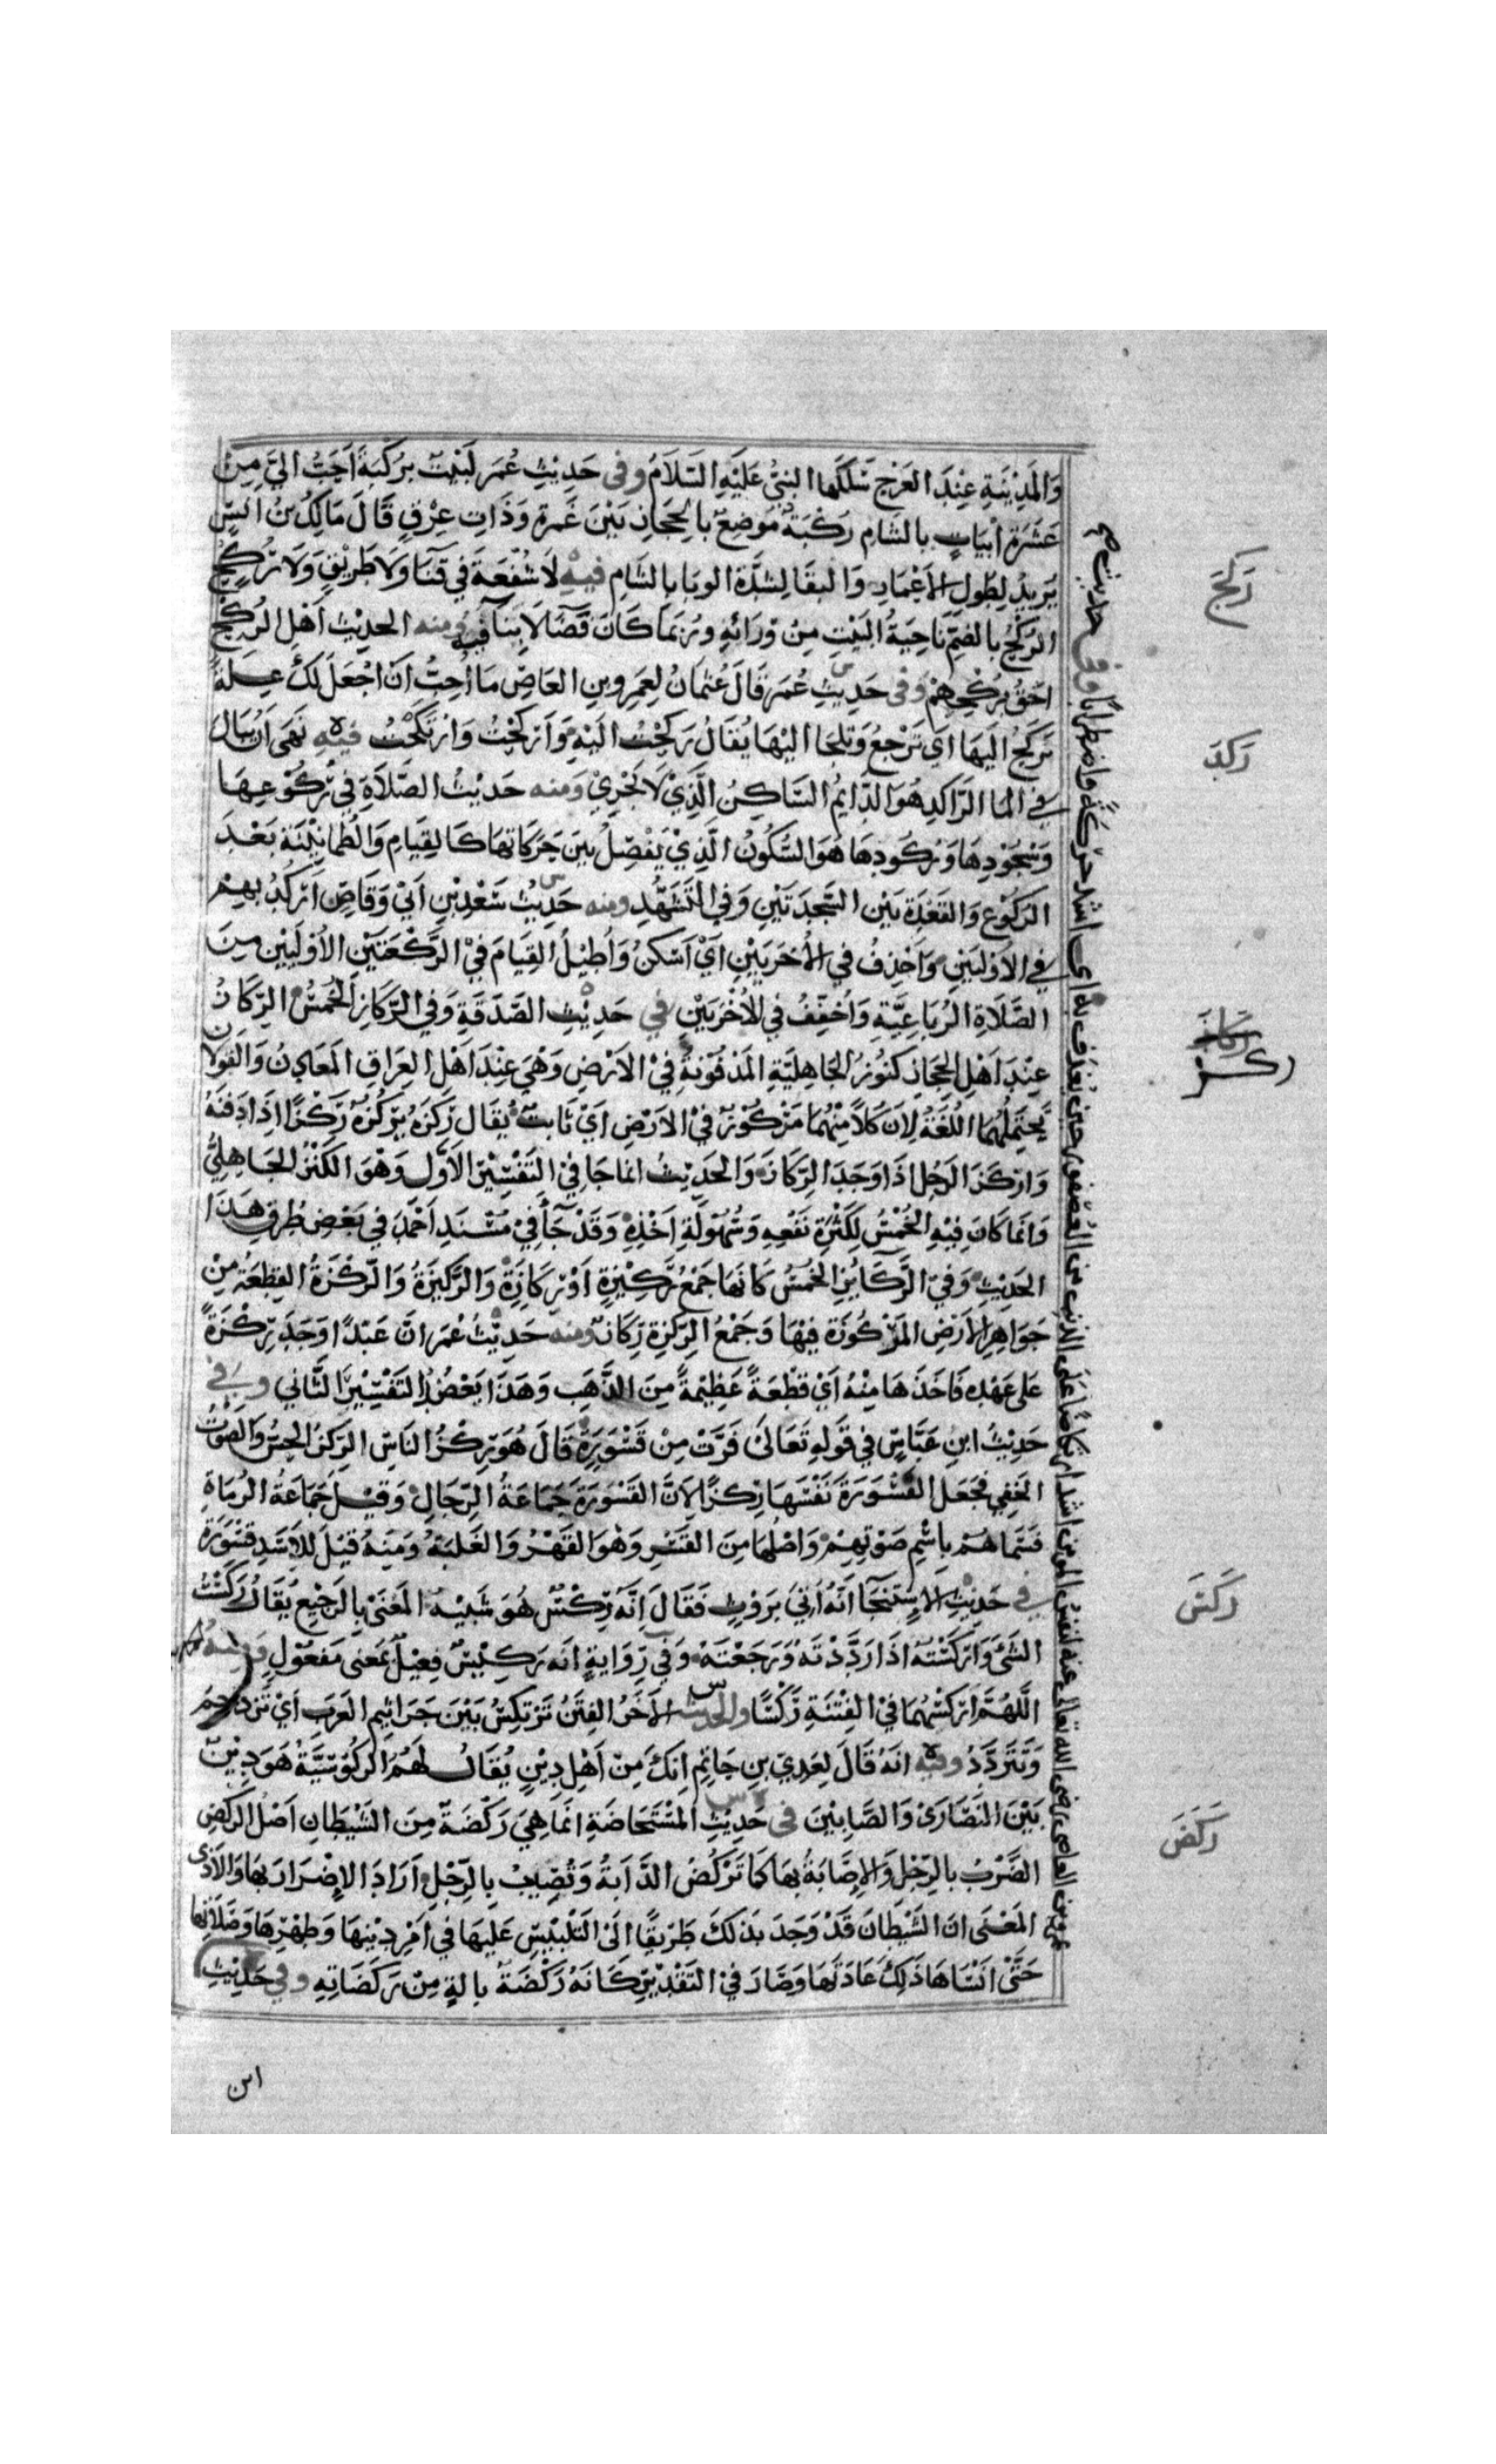 وَالمَدِيْنَةِ عِنْدَ العَرْجِ سَلَكَهَا النبيُّ عَلَيْهِ السَّلَامُ وفى حَدِيْثِ عُمَر لَبَيْتٌ بِرُكْبَةَ اَحَبُّ اليَّ مِنْ
عَشَرَةِ اَبْيَاتٍ بالشَامِ رَكْبَةُ مَوضِعٌ بالحِجَازِ بَيْنَ غَمْرَةَ وَذَاتِ عِرْقٍ قَالَ مَالِكُ بنُ اَنَسٍ
يُرِيدُ لِطُولِ الاَعْمَارِ وَالبقَا لِشدَّةِ الوَبَا بالشَامِ فيه لَا شُفْعَةَ فى فِنَا وَلَا طَرِيْقٍ وَلَا رُكْحٍ
الرُكْحُ بالضمِّ نَاحِيَةُ البَيْتِ مِنْ وَرَائِهِ وَرُبَمَا كَانَ فَضَاً لَا بِنَآ فِيه ومنه الحديْثُ اَهْلُ الرُكْحِ
احَقُّ بِرُكْحِهِمْ وَفى حَدِيثِ عُمَرَ قَالَ عُثمَانُ لِعَمرِو بنِ العَاصِ مَا اُحِبُّ اَنْ اَجْعَلَ لَكَ عِلَةً
تَرْكَحُ اليهَا اي تَرْجِعُ وَتَلْجَا اليْهَا يُقَالُ رَكَحْتُ الَيْهِ وَاَرْكَحْتُ وَارْتَكَحْتُ فيه نَهَى اَنْ يُبَالَ
في المَا الرَّاكِدِ هُوَ الدَّايمُ السَّاكِنُ الَّذِيْ لَا يَجْرِيْ وَمنه حَدِيْثُ الصَّلَاةِ فِيْ رُكُوْعِهَا
وَسُجُوْدِهَا وَرُكُودِهَا هُوَ السُّكُونُ الَّذِيْ يَفْصِلُ بَيْنَ حَرَكَاتِهَا كَالقِيَامِ وَالطُمَانِيْنَةِ بَعْدَ
الرَكُوْعِ وَالقَعْدَةِ بَيْنَ السَّجْدَتَيْنِ وَفِي التَّشَهُّدِ ومنه حَدِيْثُ سَعْدِ بْنِ اَبِيْ وَقَاصٍ اَرْكُدُ بِهِمْ
في الاُوْلَيَيْنِ وَاَحْذِفُ فى الاُخْرَيَيْنِ اَيْ اَسْكُنُ وَاُطِيْلُ القِيَامَ فِيْ الرَّكْعَتَيْنِ الاُوْلَيَيْنِ مِنَ
الصَّلَاةِ الرُبَاعِيَّةِ وَاُخَفِّفُ فى الاُخْرَيَيْنِ في حَدِيْثِ الصَّدَقَةِ وَفى الرِّكَازِ الخُمُسُ الرِّكَازُ
عِنْدَ اَهْلِ الحِجَازِ كُنُوْزُ الجَاهِلِيَّةِ المَدْفُوْنَةُ فِيْ الاَرْضِ وَهْيَ عِنْدَ اَهْلِ العِرَاقِ المَعَادِنُ وَالقَولَانِ
يَحْتَمِلُهُمَا اللُغَةُ لِاَنَّ كُلاًّ مِنْهُمَا مَرْكُوْزٌ فِيْ الاَرْضِ اَيْ ثَابِتٌ يُقَالُ رَكَزَهُ يَرْكُزُهُ رَكْزًا اِذَا دَفَنَهُ
وَارْكَزَ الرَجُلُ اذَا وَجَدَ الرِّكَازَ وَالحَدِيْثُ انمَا جَا فِيْ التَفْسِيْرِ الاَوَّلِ وَهْوَ الكَنْزُ الجَاهِلِيُّ
وَانمَا كَانَ فِيْهِ الخُمْسُ لِكَثْرَةِ نَفْعِهِ وَسُهُوْلَةِ اَخْذِهِ وَقَدْ جَآ فِيْ مُسْنَدِ اَحْمَدَ في بَعْضِ طُرُقِ هَذَا
الحَدِيْثِ وَفِيْ الرَّكَايِزِ الخُمُسُ كَانهَا جَمْعُ رَكِيْزَةٍ اَوْ رِكَازَةٍ وَالرَّكِيزَةُ وَالرِّكْزَةُ القِطْعَةُ مِنْ
جَوَاهِرِ الاَرْضِ المَرْكُوزَةِ فِيْهَا وَجَمْعُ الرِكْزَةِ رِكَازٌ ومنه حَدِيْثُ عُمَرَ انَّ عَبْدًا وَجَدَ رِكْزَةً
عَلى عَهْدِهِ فَاخَذَهَا مِنْهُ اَيْ قِطْعَةً عَظِيْمَةً مِنَ الذَّهَبِ وَهَذَا يَعْضُدُ التَفْسِيْرَ الثَّانِي وفي
حَدِيْثُ ابنِ عَبَّاسٍ في قَولِهِ تَعَالَى فَرَّتْ مِنْ قَسْوَرَةٍ قَالَ هُوَ رِكْزُ النَاسِ الرِكزُ الحِسُّ وَالصَوْتُ
الخَفِي فجَعَل القَسْوَرَةَ نَفْسَهَا رِكْزًا لِاَنَّ القَسْوَرَةَ جَمَاعَةُ الرِّجَالِ وَقِيْلَ جَمَاعَةُ الرُمَاةِ
فَسَمَّاهُمْ باِسْمِ صَوْتِهِمْ وَاَصْلُهَا مِنَ القَسْرِ وَهْوَ القَهْرُ وَالغَلَبَةُ وَمِنهُ قِيْلَ لِلاَسَدِ قَسْوَرَة
في حَدِيْثِ الاِسْتِنْجَآ اَنَّهُ اُتِيَ بِرَوْثٍ فَقَالَ اِنَّهُ رِكْسٌ هُوَ شَبِيْهُ المَعْنَى بِالرَّجِيْعِ يُقَالُ رَكَسْتُ
الشَيْ وَارْكَسْتُهُ اذَا رَدَّدْتَهُ وَرَجَعْتَهُ وَفِي رِوَايَةٍ انَّهُ رَكِيْسٌ فَعِيْلٌ بمَعْنى مَفْعُوْلٍ وَمِنْهُ
اللَّهُمَّ ارْكسْهُمَا فِيْ الفِتْنَةِ رَكْسًا والحديث الاَخَرُ الفِتَنُ تَرْتَكِسُ بَيْنَ جَرَاثِيمِ العَرَبِ اَيْ تَزْدَحِمُ
وَتَتَرَدَّدُ وفيه انَهُ قَالَ لِعَدِيِّ بنِ حَاتِمٍ اِنَكَ مِنْ اَهْلِ دِيْنٍ يُقَالُ لَهُمُ الرَكُوْسِيَّةُ هُوَ دِيْنٌ
بَيْنَ النَصَارَىْ وَالصَّابِئِيْنَ فى حَدِيْثِ المُسْتَحَاضَةِ انمَا هِيَ رَكْضَةٌ مِنَ الشَيْطَانِ اَصْلُ الرَكْضِ
الضَّرْبُ بالرِجْلِ وَالاِصَابَةُ بهَا كمَا تَرْكُضُ الدَّابَةُ وَتُصِيْبُ بِالرِّجْلِ اَرَادَ الاِضْرَارَ بهَا وَالاَذَى
المَعْنَى انَّ الشَيْطَانَ قَدْ وَجَدَ بذَلكَ طَرِيقًا الَى التَلْبِيْسِ عَلَيهَا في اَمْرِ دِيْنِهَا وَطُهْرِهَا وَصَلَاتِهَا
حَتَّى انْسَاهَا ذَلِكَ عَادَتَهَا وَصَارَ فِيْ التَقْدِيْرِ كَانَهُ رَكْضَةٌ بالَةٍ مِنْ رَكَضَاتِهِ وفي حَدِيْثِ
ابن
رَكَحَ
رَكَدَ
ركز
رَكَسَ
رَكَضَ
عمرو بن العاصى رضى الله تعالى عنه لنفس المومن اشد ارتكاضًا عَلَى الذنب من العصفور حين يغدف به اى اشد حركةً واضطرابًا وفى حديث